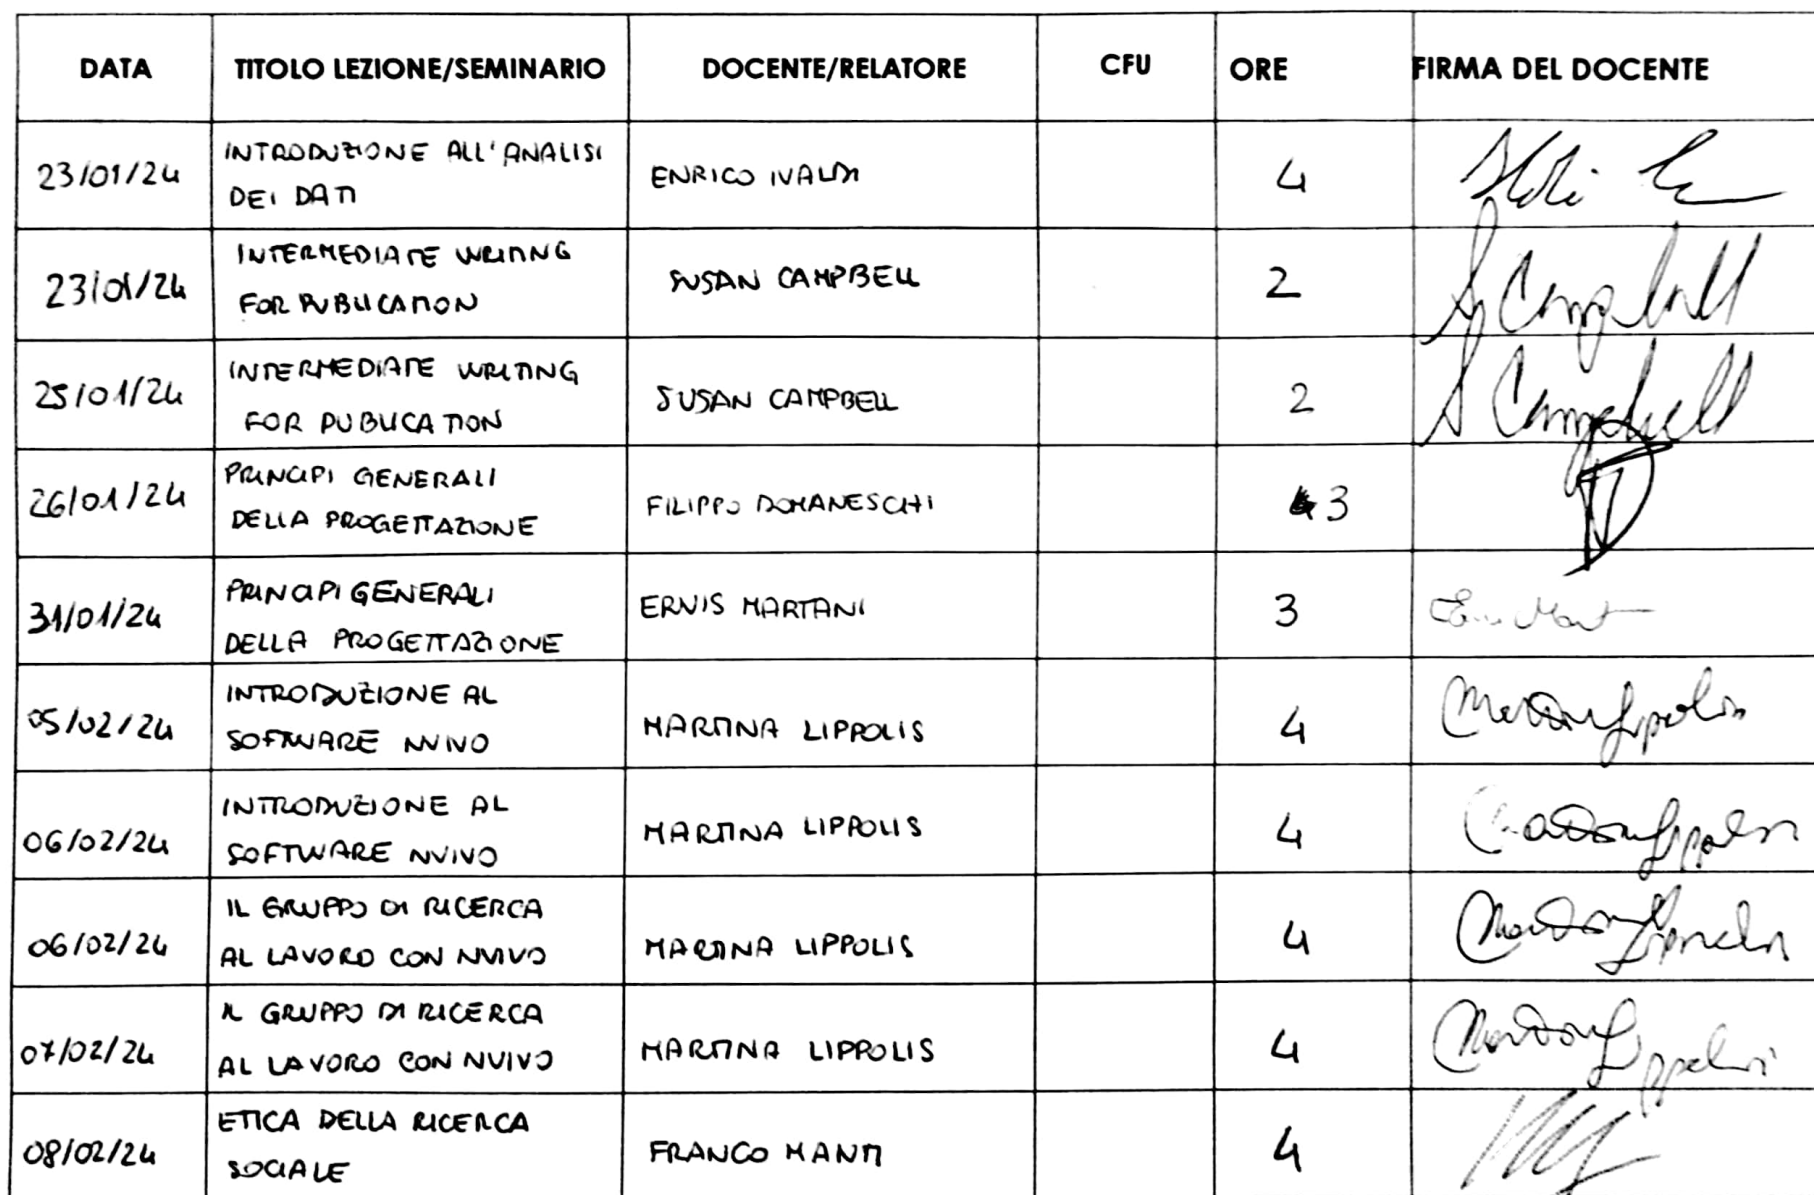 DATA TITOLO LEZIONE/SEMINARIO DOCENTE/RELATORE CFU ORE FIRMA DEL DOCENTE
23/01/24 INTRODUZIONE ALL'ANALISI DEI DATI ENRICO IVALDI 4
23/01/24 INTERMEDIATE WRITING FOR PUBLICATION SUSAN CAMPBELL 2 S Campbell
25/01/24 INTERMEDIATE WRITING FOR PUBLICATION SUSAN CAMPBELL 2 S Campbell
26/01/24 PRINCIPI GENERALI DELLA PROGETTAZIONE FILIPPO DOMANESCHI 3
31/01/24 PRINCIPI GENERALI DELLA PROGETTAZIONE ERVIS MARTANI 3
05/02/24 INTRODUZIONE AL SOFTWARE NVIVO MARTINA LIPPOLIS 4
06/02/24 INTRODUZIONE AL SOFTWARE NVIVO MARTINA LIPPOLIS 4
06/02/24 IL GRUPPO DI RICERCA AL LAVORO CON NVIVO MARTINA LIPPOLIS 4
07/02/24 IL GRUPPO DI RICERCA AL LAVORO CON NVIVO MARTINA LIPPOLIS 4
08/02/24 ETICA DELLA RICERCA SOCIALE FRANCO MANTI 4